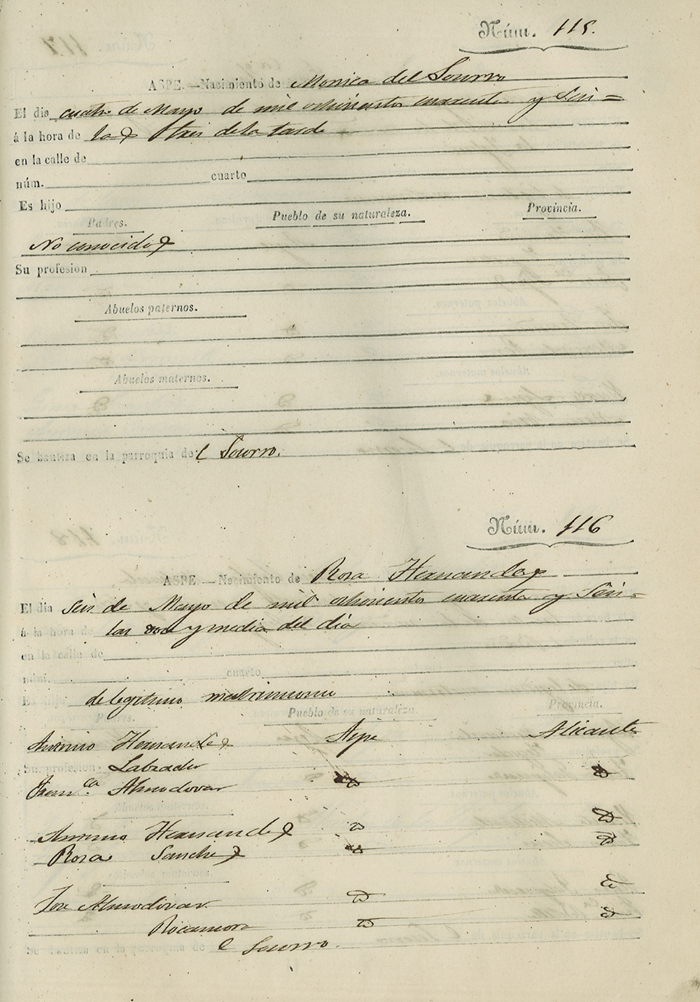 Núm. 115.
ASPE.—Nacimiento de Monica del Socorro
El dia cuatro de Mayo de mil ochocientos cuarenta y Seis=
á la hora de las tres de la tarde
en la calle de
núm. cuarto
Es hijo
Padres. Pueblo de su naturaleza. Provincia.
No conocidos
Su profesion
Abuelos paternos.
Abuelos maternos.
Se bautiza en la parroquia del Socorro.
Núm. 116
ASPE.—Nacimiento de Rosa Hernandez
El dia Seis de Mayo de mil ochocientos cuarenta y Seis=
á la hora de las doce y media del dia
en la calle de
núm. cuarto
Es hijo de legitimo matrimonio
Padres. Pueblo de su naturaleza. Provincia.
Antonio Hernandez Aspe Alicante
Su profesion Labrador
Franca Almodovar
Antonio Hernandez
Rosa Sanchez
Jose Almodovar
Rocamora
Se bautiza en la parroquia de l Socorro.